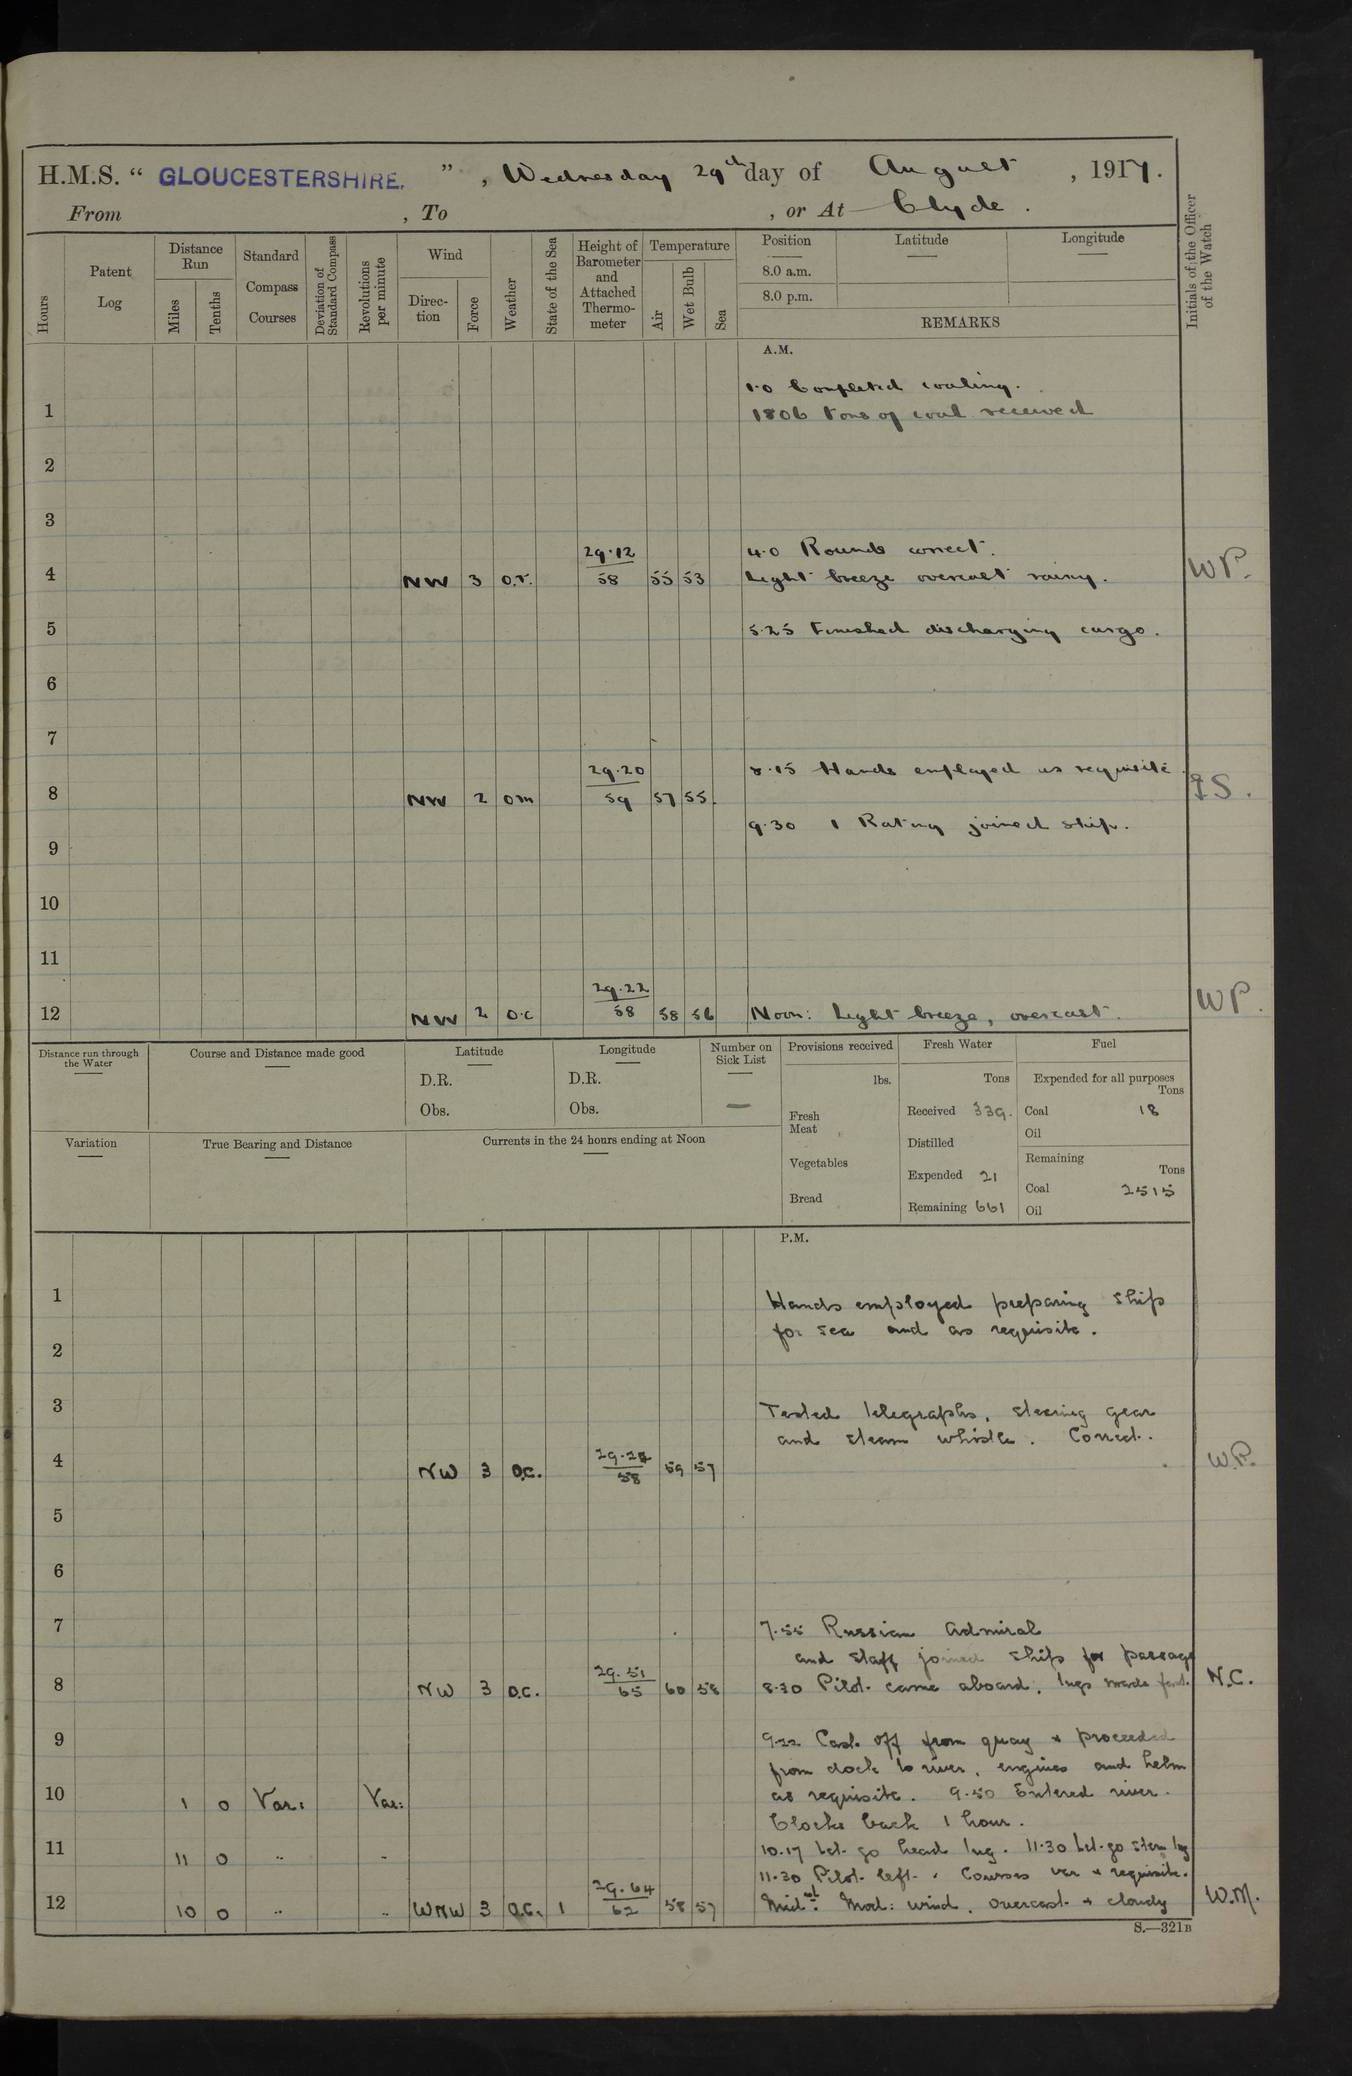 H.M.S. " GLOUCESTERSHIRE. " , Wednesday 29th day of August , 1917.
From , To , or At Clyde .
Hours Patent Log Distance Run Miles Tenths Standard Compass Courses Deviation of Standard Compass Revolutions per minute Wind Direction Force Weather State of the Sea Height of Barometer and Attached Thermometer Temperature Air Wet Bulb Sea Position Latitude Longitude Initials of the Officer of the Watch
8.0 a.m.
8.0 p.m.
REMARKS
A.M.
1.0 Completed coaling.
1 1806 tons of coal received
2
3
29.12 4.0 Rounds correct.
4 NW 3 O.r. 58 55 53 Light breeze overcast rainy. WP.
5 5.25 Finished discharging cargo.
6
7
29.20 8.15 Hands employed as requisite.
8 NW 2 om 59 57 55. S.
9.30 1 Rating joined ship.
9
10
11
29.22
12 NW 2 O.C 58 58 56 Noon: Light breeze, overcast. WP.
Distance run through the Water Course and Distance made good Latitude Longitude Number on Sick List Provisions received Fresh Water Fuel
D.R. D.R. lbs. Tons Expended for all purposes Tons
Obs. Obs. — Fresh Meat Received 339. Coal 18
Distilled Oil
Variation True Bearing and Distance Currents in the 24 hours ending at Noon
Vegetables Expended 21 Remaining Tons
Coal 2515
Bread Remaining 661 Oil
P.M.
1 Hands employed preparing ship
for sea and as requisite.
2
3 Tested telegraphs, steering gear
and steam whistle. Correct.
4 NW 3 O.C. 58 59 57 W.P.
5
6
7 7.55 Russian Admiral
and staff joined ship for passage
29.51
8 NW 3 O.C. 65 60 58 8.30 Pilot came aboard, tugs made fast. N.C.
9 9.22 Cast off from quay & proceeded
from dock to river, engines and helm
10 1 0 Var: Var: as requisite. 9.50 Entered river.
Clocks back 1 hour.
11 11 0 " " 10.17 Let go head tug. 11.30 Let go stern tug
11.30 Pilot left. Courses var & requisite.
29.64
12 10 0 " " WNW 3 O.C. 1 62 58 57 Midt: Mod: wind, overcast & cloudy W.M.
S.—321B